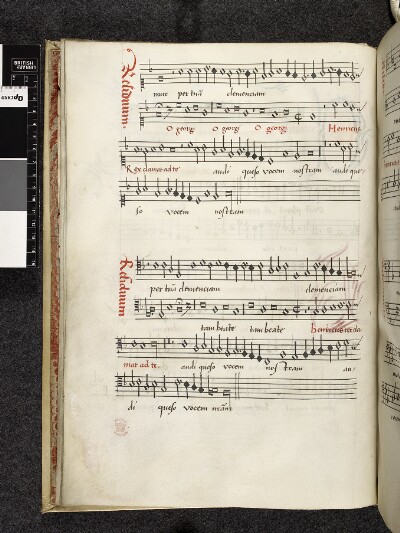 Residuum.
mur per tuā clemenciam
O georgi O georgi O georgi Henricus
Rex clamat ad te audi queso vocem nostram audi que-
so vocem nostram
Residuum
per tuā clemenciam clemenciam
tam beate tam beate
mat ad te. audi queso vocem nostram au-
di queso vocem nrām
BRITISH
LIBRARY